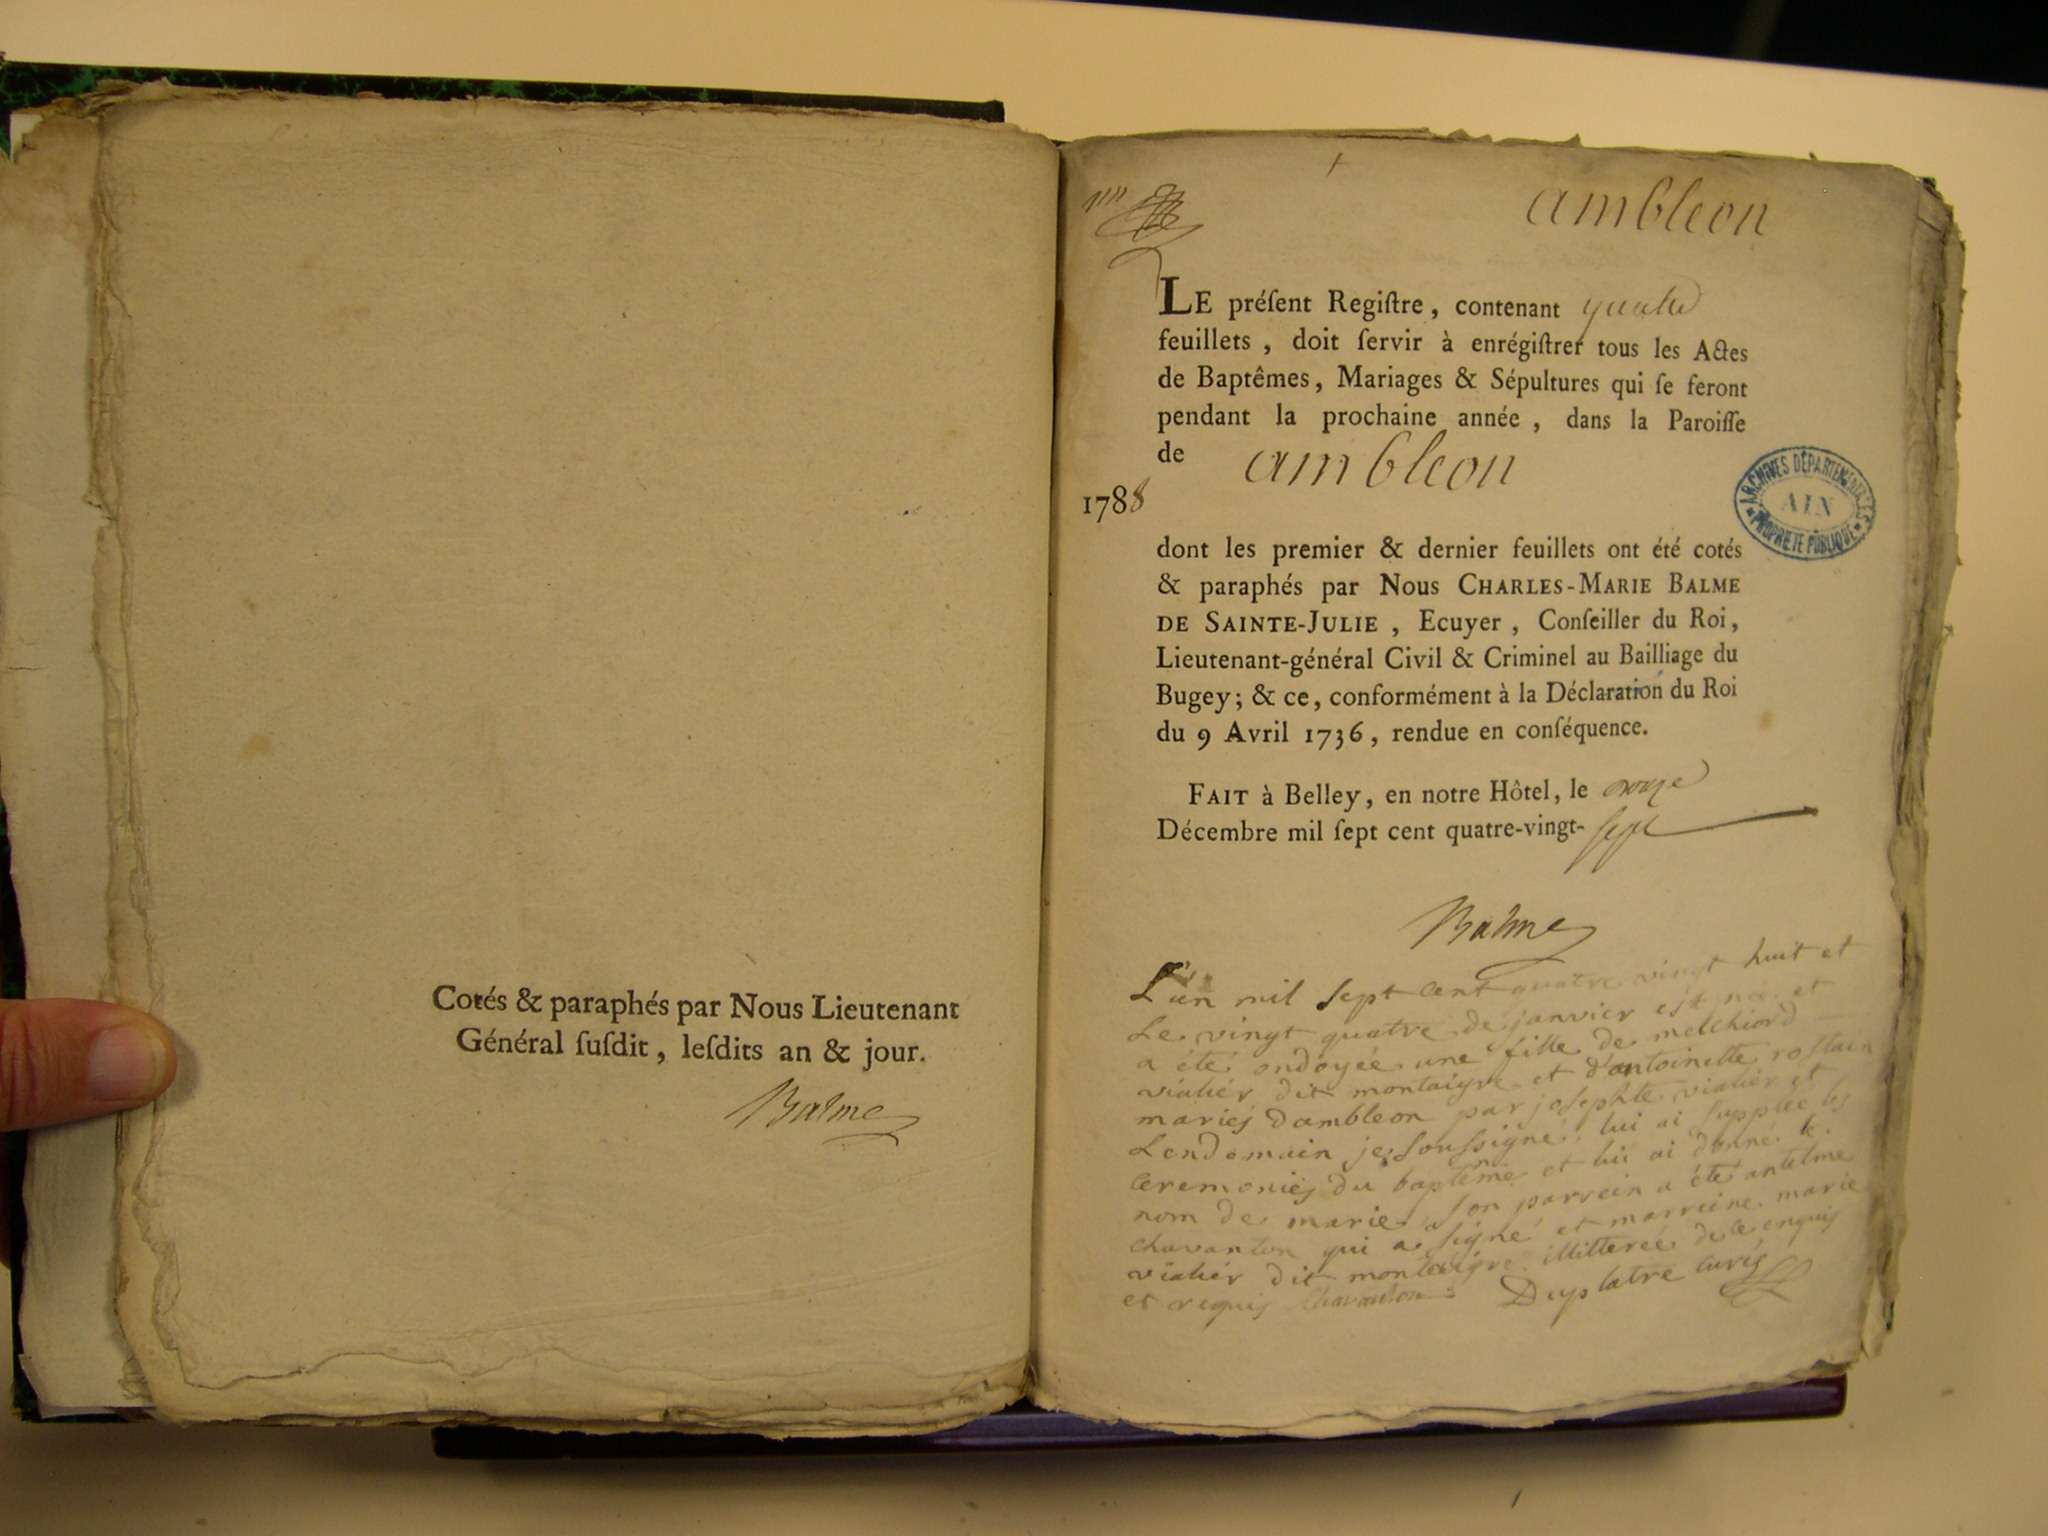 Cotés & paraphés par Nous Lieutenant
Général ſuſdit, leſdits an & jour.
Balme
ambleon
LE préſent Regiſtre, contenant quatre
feuillets, doit ſervir à enrégiſtrer tous les Actes
de Baptêmes, Mariages & Sépultures qui ſe feront
pendant la prochaine année, dans la Paroiſſe
de ambleon
1788
ARCHIVES DÉPARTEMENTALES
AIN
PROPRIÉTÉ PUBLIQUE
dont les premier & dernier feuillets ont été cotés
& paraphés par Nous CHARLES-MARIE BALME
DE SAINTE-JULIE, Ecuyer, Conſeiller du Roi,
Lieutenant-général Civil & Criminel au Bailliage du
Bugey; & ce, conformément à la Déclaration du Roi
du 9 Avril 1736, rendue en conſéquence.
FAIT à Belley, en notre Hôtel, le onze
Décembre mil ſept cent quatre-vingt-sept
Balme
L'an mil sept cent quatre vingt huit et
Le vingt quatre de janvier est née et
a été ondoyée une fille de melchiord
vialier dit montaigre et d'antoinette rostain
mariés d'ambleon par josephte vialier et
Lendemain je soussigné lui ai supplée les
ceremonies du baptême et lui ai donné le
nom de marie son parrein a été antelme
chavanton qui a signé et marreine marie
vialier dit montaigre illitterée de ce enquis
et requis chavanton Duplatre curé